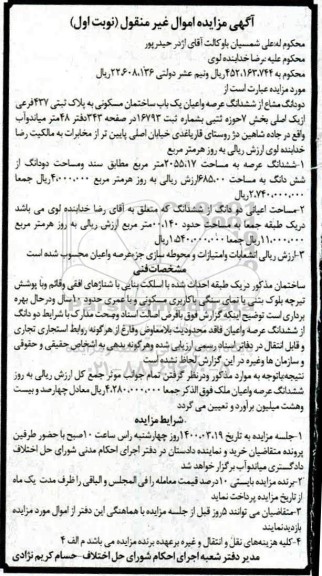 آگهی مزایده اموال غیر منقول (نوبت اول)
محکوم له:علی شمسیان باوکالت آقای اژدر حیدرپور
محکوم علیه:رضا خدابنده لوی
محکوم به ۴۵۲،۱۶۳،۷۴۴ریال ونیم عشر دولتی ۲۲،۶۰۸،۱۳۶ریال
مورد مزایده عبارت است از
دودانگ مشاع از ششدانگ عرصه واعیان یک باب ساختمان مسکونی به پلاک ثبتی ۴۳۷فرعی
ازیک اصلی بخش ۷حوزه ثبتی بشماره ثبت ۱۶۷۹۳در صفحه ۳۴۳دفتر ۴۸متر میاندوآب
واقع در جاده شاهین دژ روستای قارباغدی خیابان اصلی پایین تر از مخابرات به مالکیت رضا
خدابنده لوی ارزش ریالی به روز هرمتر مربع
۱-ششدانگ عرصه به مساحت ۲۰۵۵،۱۷متر مربع مطابق سند ومساحت دودانگ از
شش دانگ به مساحت ۶۸۵،۰۰ارزش ریالی به روز هرمتر مربع ۴،۰۰۰،۰۰۰ریال جمعا
۲،۷۴۰،۰۰۰،۰۰۰ریال
۲-مساحت اعیانی دو دانگ از ششدانگ که متعلق به آقای رضا خدابنده لوی می باشد
دریک طبقه جمعا به مساحت حدود ۱۴۰،۰۰متر مربع ارزش ریالی به روز هرمتر مربع
۱۱،۰۰۰،۰۰۰ریال جمعا ۱،۵۴۰،۰۰۰،۰۰۰ریال
۳-ارزش ریالی انشعابات وامتیازات و محوطه سازی جزءعرصه واعیان محسوب شده است
مشخصات فنی
ساختمان مذکور دریک طبقه احداث شده با اسکلت بنایی با شناژهای افقی وقائم وبا پوشش
تیرچه بلوک بتنی با نمای سنگی باکاربری مسکونی و با عمری حدود ۱۰سال ودرحال بهره
برداری است توضیح اینکه گزارش فوق بافرض اصالت اسناد وصحت مدارک با شرایط دو دانگ
از ششدانگ عرصه واعیان فاقد محدودیت بلامعارض وفارغ از هرگونه روابط استجاری تجاری
و قابل انتقال در دفاتر اسناد رسمی ارزیابی شده وهرگونه بدهی به اشخاص حقیقی و حقوقی
و سازمان ها وغیره در این گزارش لحاظ نشده است
نتیجه:باتوجه به موارد مذکور ودرنظر گرفتن تمام جوانب موثر جمع کل ارزش ریالی به روز
ششدانگ عرصه واعیان ملک فوق الذکر جمعا ۴،۲۸۰،۰۰۰،۰۰۰ریال معادل چهارصد و بیست
وهشت میلیون برآورد و تعیین می گردد
شرایط مزایده
۱-جلسه مزایده به تاریخ ۱۴۰۰،۰۳،۱۹روز چهارشنبه راس ساعت ۱۰صبح با حضور طرفین
پرونده متقاضیان خرید و نماینده دادستان در دفتر اجرای احکام مدنی شورای حل اختلاف
دادگستری میاندوآب برگزار خواهد شد
۲-برنده مزایده بایستی ۱۰درصد قیمت معامله را فی المجلس و الباقی را ظرف مدت یک ماه
از تاریخ مزایده پرداخت نماید
۳-متقاضیان می توانند ۵روز قبل از جلسه مزایده با هماهنگی این دفتر از اموال مورد مزایده
بازدیدنمایند
۴-کلیه هزینه‌های نقل و انتقال و غیره برعهده برنده مزایده می باشد م الف ۴
مدیر دفتر شعبه اجرای احکام شورای حل اختلاف-حسام کریم نژادی